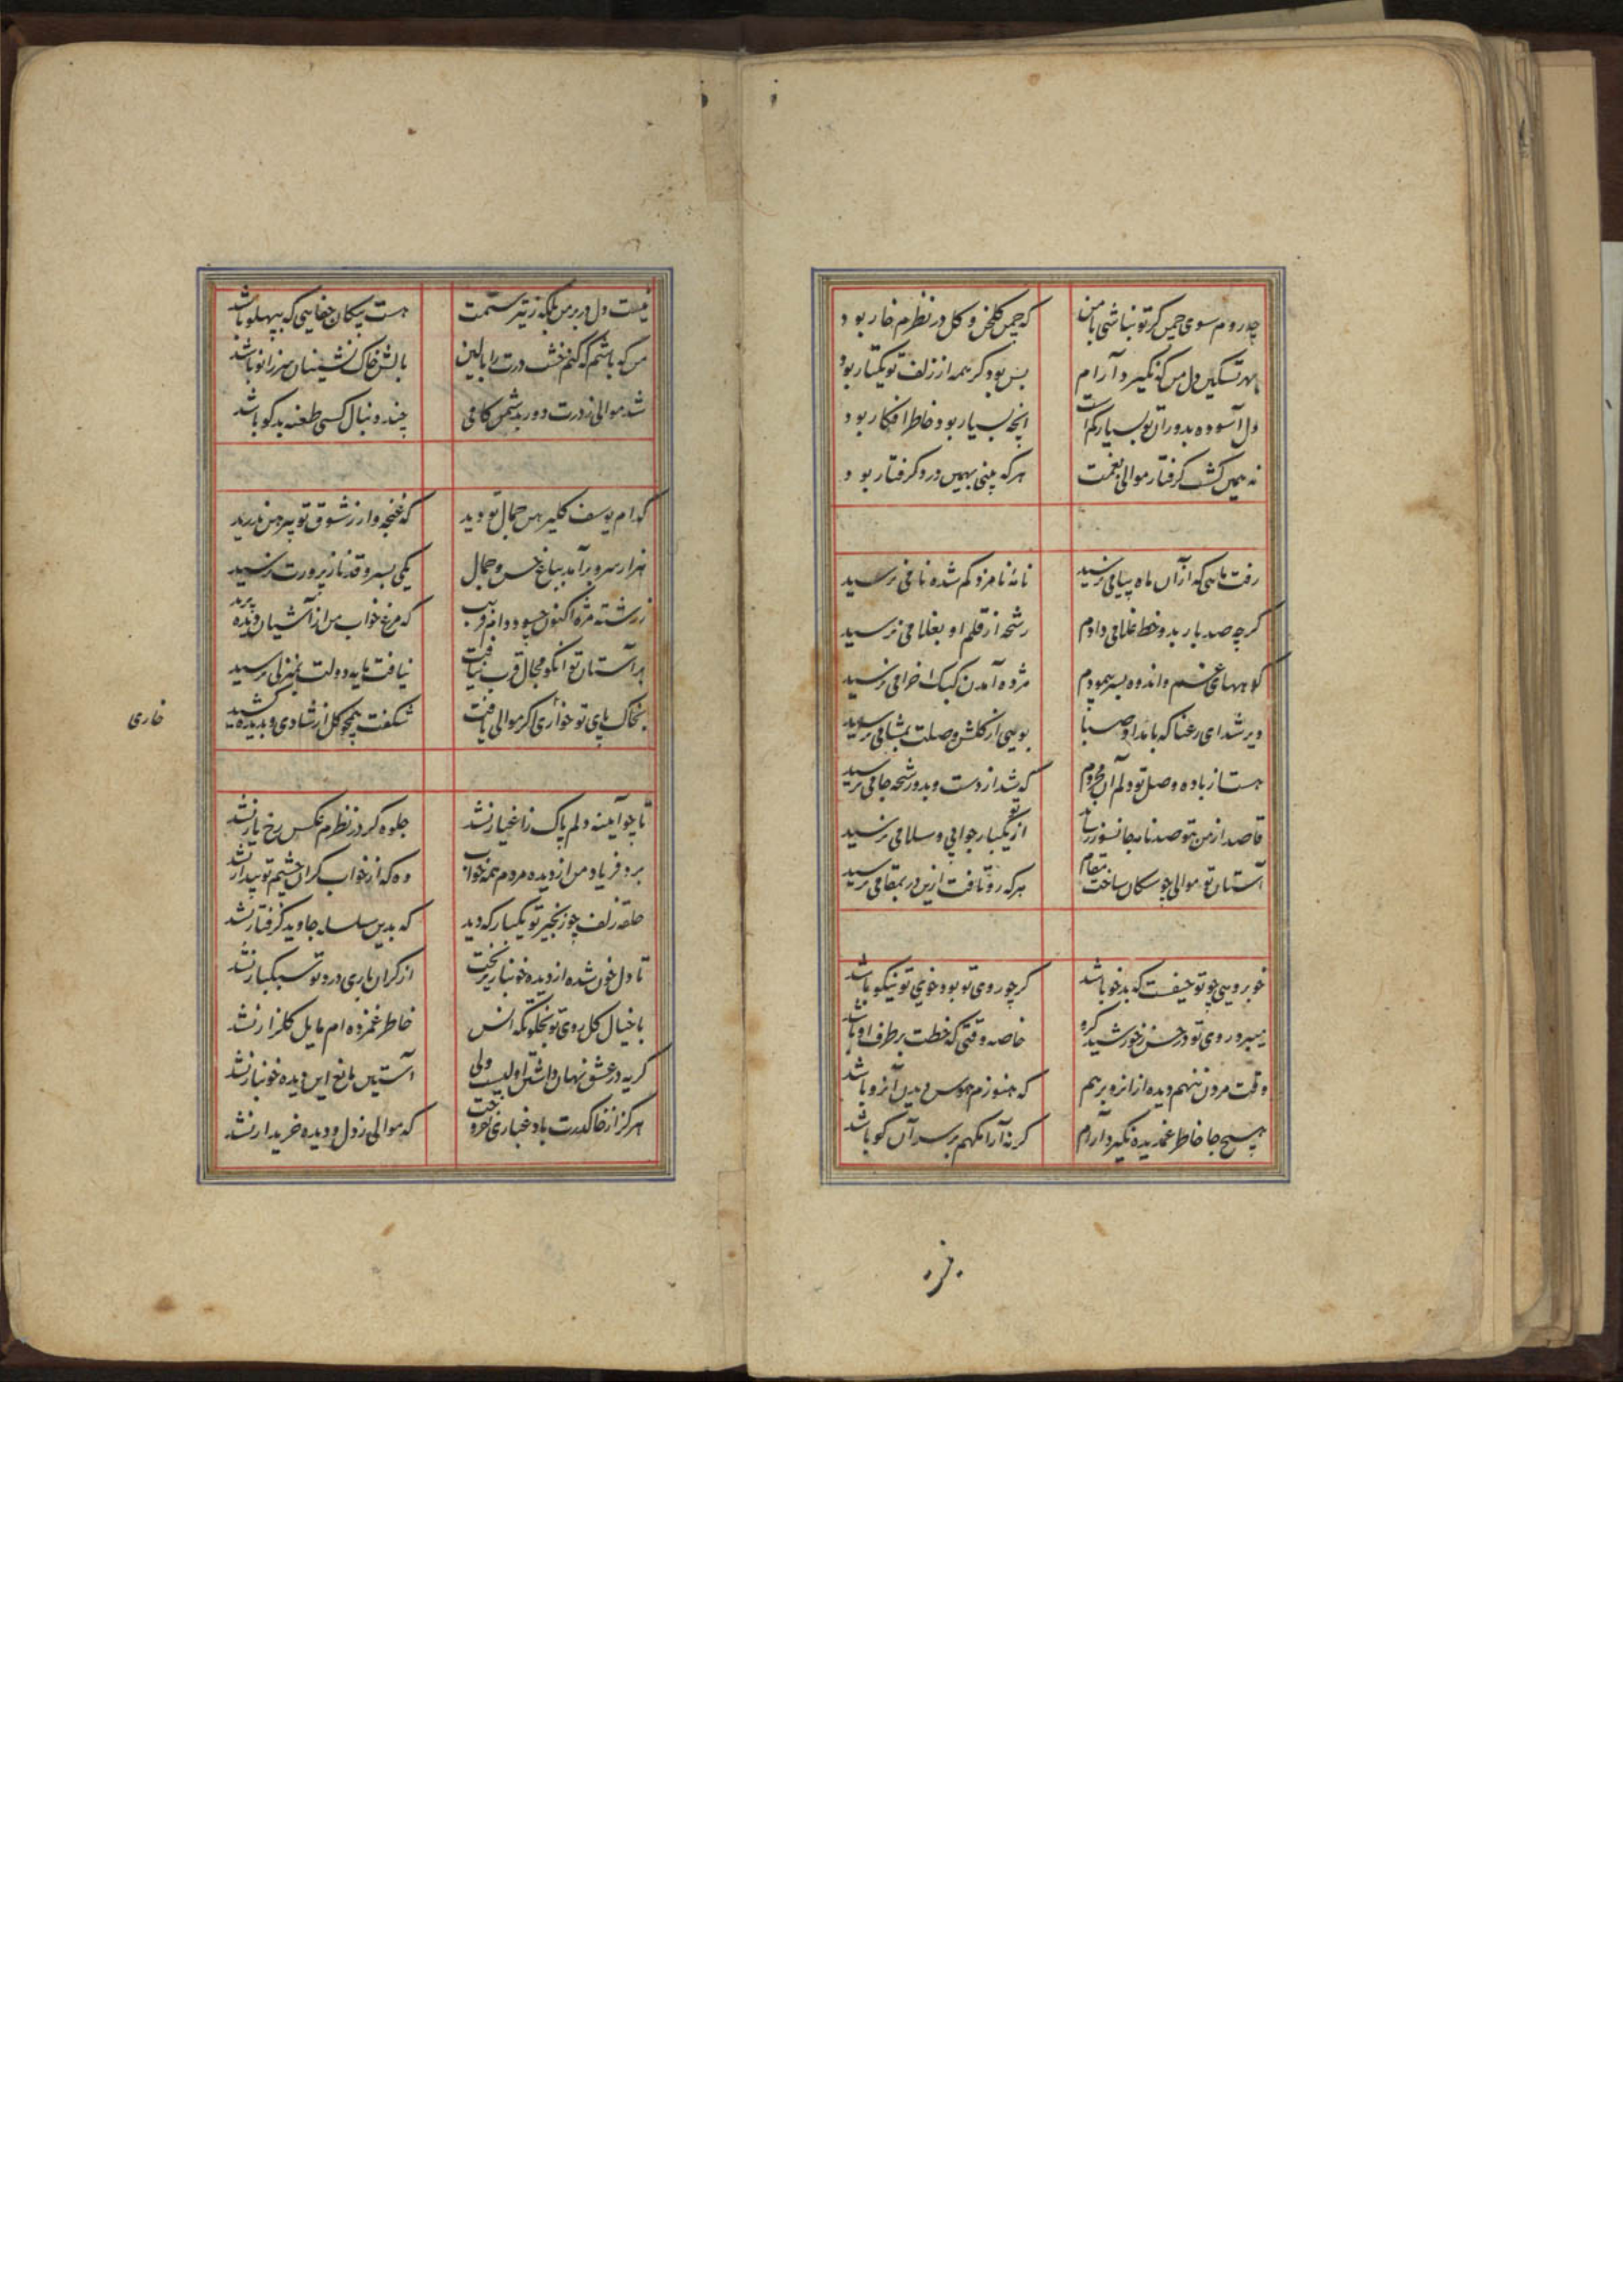 چه روم سوی چمن گر تو نباشی با من که چمن گلخن و گل در نظرم خار بود
بهر تسکین دل من که نگیرد آرام بس بود گر همه از زلف تو یکتار بود
دل آسوده بدوران تو بسیار کم است آنچه بسیار بود خاطر افکار بود
نه همین گشت گرفتار موالی بغمت هر که بینی بهمین درد گرفتار بود
رفت ماهی که از آن ماه پیامی نرسید نامهٔ نامزد گم شده نامی نرسید
گرچه صد بار بدو خط غلامی دادم رشحه از قلم او بغلامی نرسید
کوههای غم و اندوه بسر پیمودم مژده آمدن کبک خرامی نرسید
دیر شد ای رعنا که بامداد صبا بویی از گلشن وصلت بمشامی نرسید
هست از باده وصل تو دلم آن محروم که شد از دست و بدو رشحه جامی نرسید
قاصد از من بتو صد نامه جانسوز رساند از تو یکبار جوابی و سلامی نرسید
آستان تو موالی چو سگان ساخت مقام هر که رو تافت ازین در بمقامی نرسید
خوبرویی چو تو حیفست که بدخو باشد گر چو روی تو بود خوی تو نیکو باشد
میبرد روی تو در حسن ز خورشید گرو خاصه وقتی که خطت بر طرف او باشد
وقت مردن ننهم دیده از آنرو برهم که هنوزم هوس دیدن آنرو باشد
هیچ جا خاطر غمدیده نگیرد آرام گر نه آرامگهم بر سر آن کو باشد
نیست دل در بر من بلکه ز تیر ستمت هست پیکان جفایی که بپهلو باشد
من که باشم که کنم خشت درت را بالین بالش خاک نشینان سر زانو باشد
شد موالی ز درت دور بدشمن کامی چند دنبال کسی طعنه بدگو باشد
کدام یوسف گلپیرهن جمال تو دید که غنچه وار ز شوق تو پیرهن ندرید
هزار سرو برآمد بباغ حسن و جمال یکی بسرو قد نازپرورت نرسید
ز رشته مژه اکنون چسود دام فریب که مرغ خواب من از آشیان دیده پرید
بر آستان تو آنکو مجال قرب نیافت نیافت مایه دولت بمنزلی نرسید
بخاک پای تو خواری اگر موالی یافت شکفت همچو گل از شادی و بدیده کشید
خاری
تا چو آیینه دلم پاک ز اغیار نشد جلوه گر در نظرم عکس رخ یار نشد
برد فریاد من از دیده مردم همه خواب وه که از خواب گران چشم تو بیدار نشد
حلقه زلف چو زنجیر تو یکبار که دید که بدین سلسله جاوید گرفتار نشد
تا دل خون شده از دیده خونبار نریخت از گران باری درد تو سبکبار نشد
با خیال گل روی تو بخلوتگه انس خاطر غمزده ام مایل گلزار نشد
گریه در عشق نهان داشتن اولیست ولی آستین مانع این دیده خونبار نشد
هرگز از خاک درت باد غباری نفروخت که موالی ز دل و دیده خریدار نشد